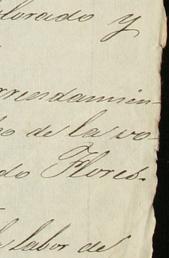 olorado y
rriendamien-
o de la vo-
do Flores.
l labor de